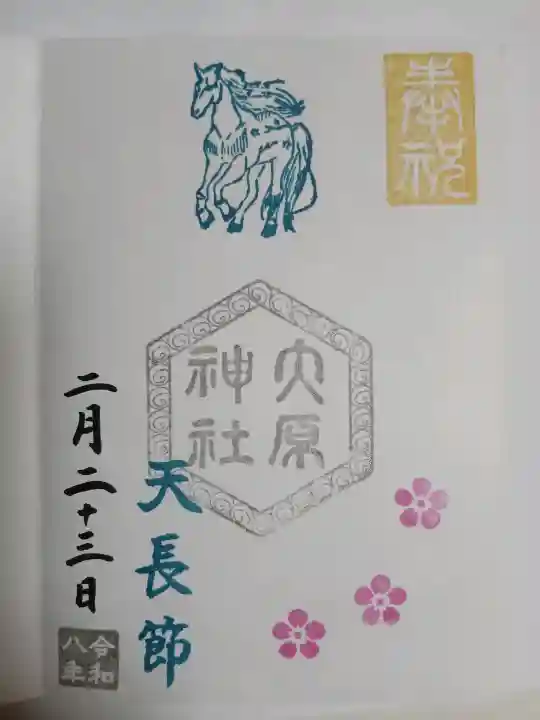 奉祝
大原
神社
天長節
二月二十三日
令和
八年